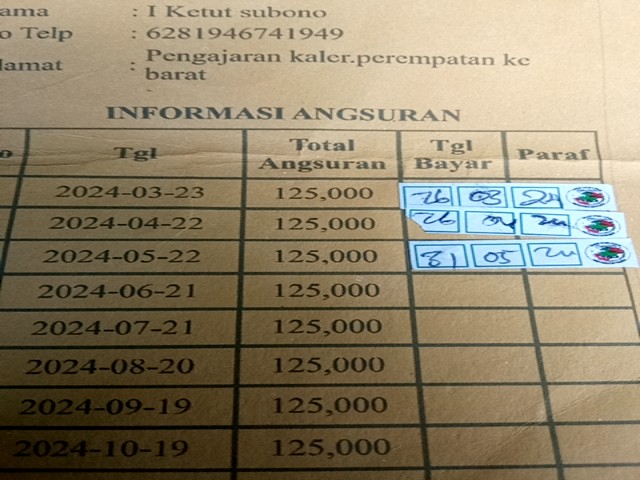 ama : I Ketut subono
o Telp : 6281946741949
lamat : Pengajaran kaler.perempatan ke
barat
INFORMASI ANGSURAN
o Tgl Total Angsuran Tgl Bayar Paraf
2024-03-23 125,000 26 03 24
2024-04-22 125,000 26 04 24
2024-05-22 125,000 31 05 24
2024-06-21 125,000
2024-07-21 125,000
2024-08-20 125,000
2024-09-19 125,000
2024-10-19 125,000